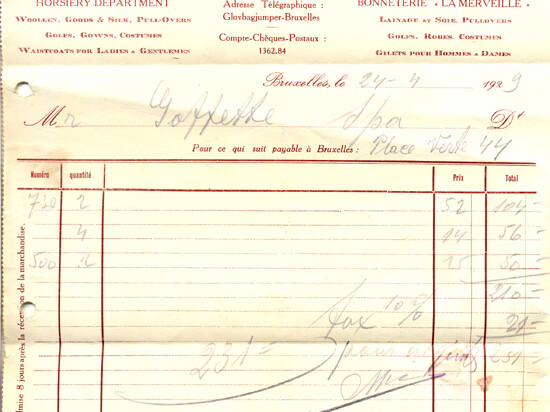 HORSIERY DEPARTMENT
Woollen, Goods & Silk, Pull-Overs
Golfs, Gowns, Costumes
Waistcoats for Ladies & Gentlemes
Adresse Télégraphique :
Glovbagjumper-Bruxelles
Compte-Chèques-Postaux :
1362.84
BONNETERIE « LA MERVEILLE »
Lainage et Soie, Pullovers
Golfs, Robes, Costumes
Gilets pour Hommes & Dames
Bruxelles, le 24-4 1929
Mr Goffette Spa Dt
Pour ce qui suit payable à Bruxelles : Place Verte 44
Numéro quantité Prix Total
730 2 52 104-
4 14 56-
500 2 50-
210-
Tax 10% 21-
231- pour 231-
admise 8 jours après la réceton de la marchandise.